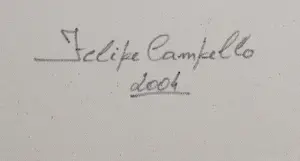 Felipe Campello
2004